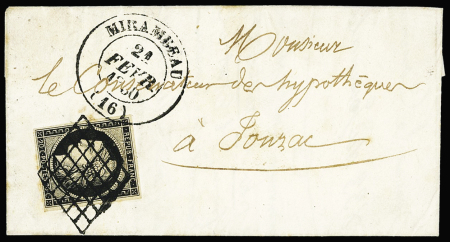 MIRAMBEAU
21
FEVR
1850
(16)
Monsieur
le Conservateur des hypothèques
à Jonzac
REPUB. FRANC.